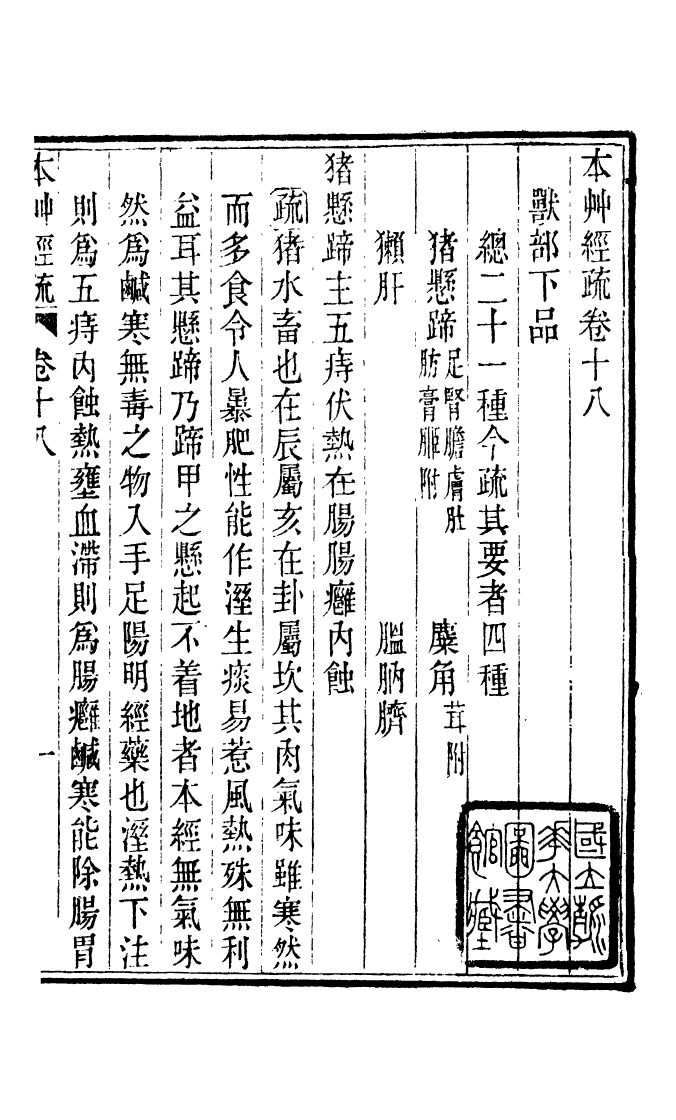 本艸經疏卷十八
獸部下品
總二十一種今疏其要者四種
猪懸蹄足腎膽膚肚肪膏䐁附　麋角茸附
獺肝　膃肭臍
猪懸蹄主五痔伏熱在腸腸癰內蝕
疏猪水畜也在辰屬亥在卦屬坎其肉氣味雖寒然
而多食令人暴肥性能作溼生痰易惹風熱殊無利
益耳其懸蹄乃蹄甲之懸起不着地者本經無氣味
然爲鹹寒無毒之物入手足陽明經藥也溼熱下注
則爲五痔內蝕熱壅血滯則爲腸癰鹹寒能除腸胃
本艸經疏　卷十八　一